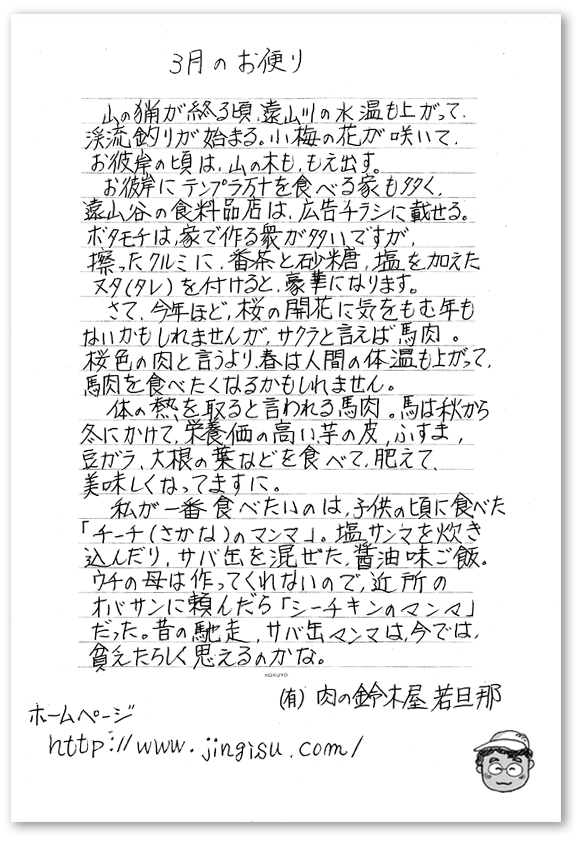 3月のお便り
山の猟が終る頃、遠山川の水温も上がって、
渓流釣りが始まる。小梅の花が咲いて、
お彼岸の頃は、山の木も、もえ出す。
お彼岸にテンプラ万十を食べる家も多く、
遠山谷の食料品店は、広告チラシに載せる。
ボタモチは、家で作る衆が多いですが、
擦ったクルミに、番茶と砂糖、塩を加えた
ヌタ(タレ)を付けると、豪華になります。
さて、今年ほど、桜の開花に気をもむ年も
ないかもしれませんが、サクラと言えば馬肉。
桜色の肉と言うより、春は人間の体温も上がって、
馬肉を食べたくなるかもしれません。
体の熱を取ると言われる馬肉。馬は秋から
冬にかけて、栄養価の高い芋の皮、ふすま、
豆ガラ、大根の葉などを食べて、肥えて、
美味しくなってますに。
私が一番食べたいのは、子供の頃に食べた
「チーチ(さかな)のマンマ」。塩サンマを炊き
込んだり、サバ缶を混ぜた、醤油味ご飯。
ウチの母は作ってくれないので、近所の
オバサンに頼んだら「シーチキンのマンマ」
だった。昔の馳走、サバ缶マンマは、今では、
貧えたらしく思えるのかな。
KOKUYO
(有) 肉の鈴木屋 若旦那
ホームページ
http://www.jingisu.com/